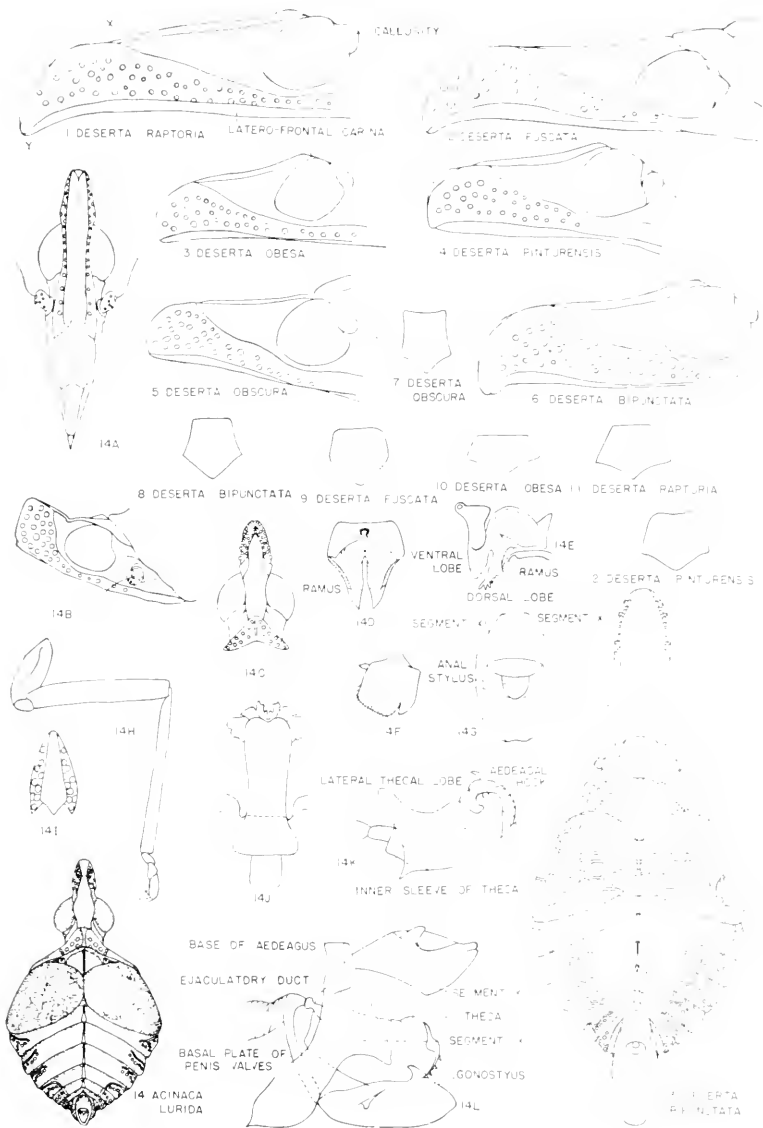 X
CALLUNITY
1 DESERTA RAPTORIA
LATERO-FRONTAL CARINA
Y
DESERTA FUSCATA
3 DESERTA OBESA
4 DESERTA PINTURENSIS
5 DESERTA OBSCURA
7 DESERTA
OBSCURA
6 DESERTA BIPUNCTATA
14A
8 DESERTA BIPUNCTATA
9 DESERTA FUSCATA
10 DESERTA OBESA
11 DESERTA RAPTORIA
14B
14C
RAMUS
14D
VENTRAL
LOBE
14E
RAMUS
DORSAL LOBE
2 DESERTA PINTURENSIS
SEGMENT
SEGMENT X
ANAL
STYLUS
14H
4F
14G
14I
14J
LATERAL THECAL LOBE
AEDEAGAL
HOOK
14K
INNER SLEEVE OF THECA
BASE OF AEDEAGUS
EJACULATORY DUCT
SEGMENT
THECA
SEGMENT
BASAL PLATE OF
PENIS VALVES
GONOSTYUS
14L
14 ACINACA
LURIDA